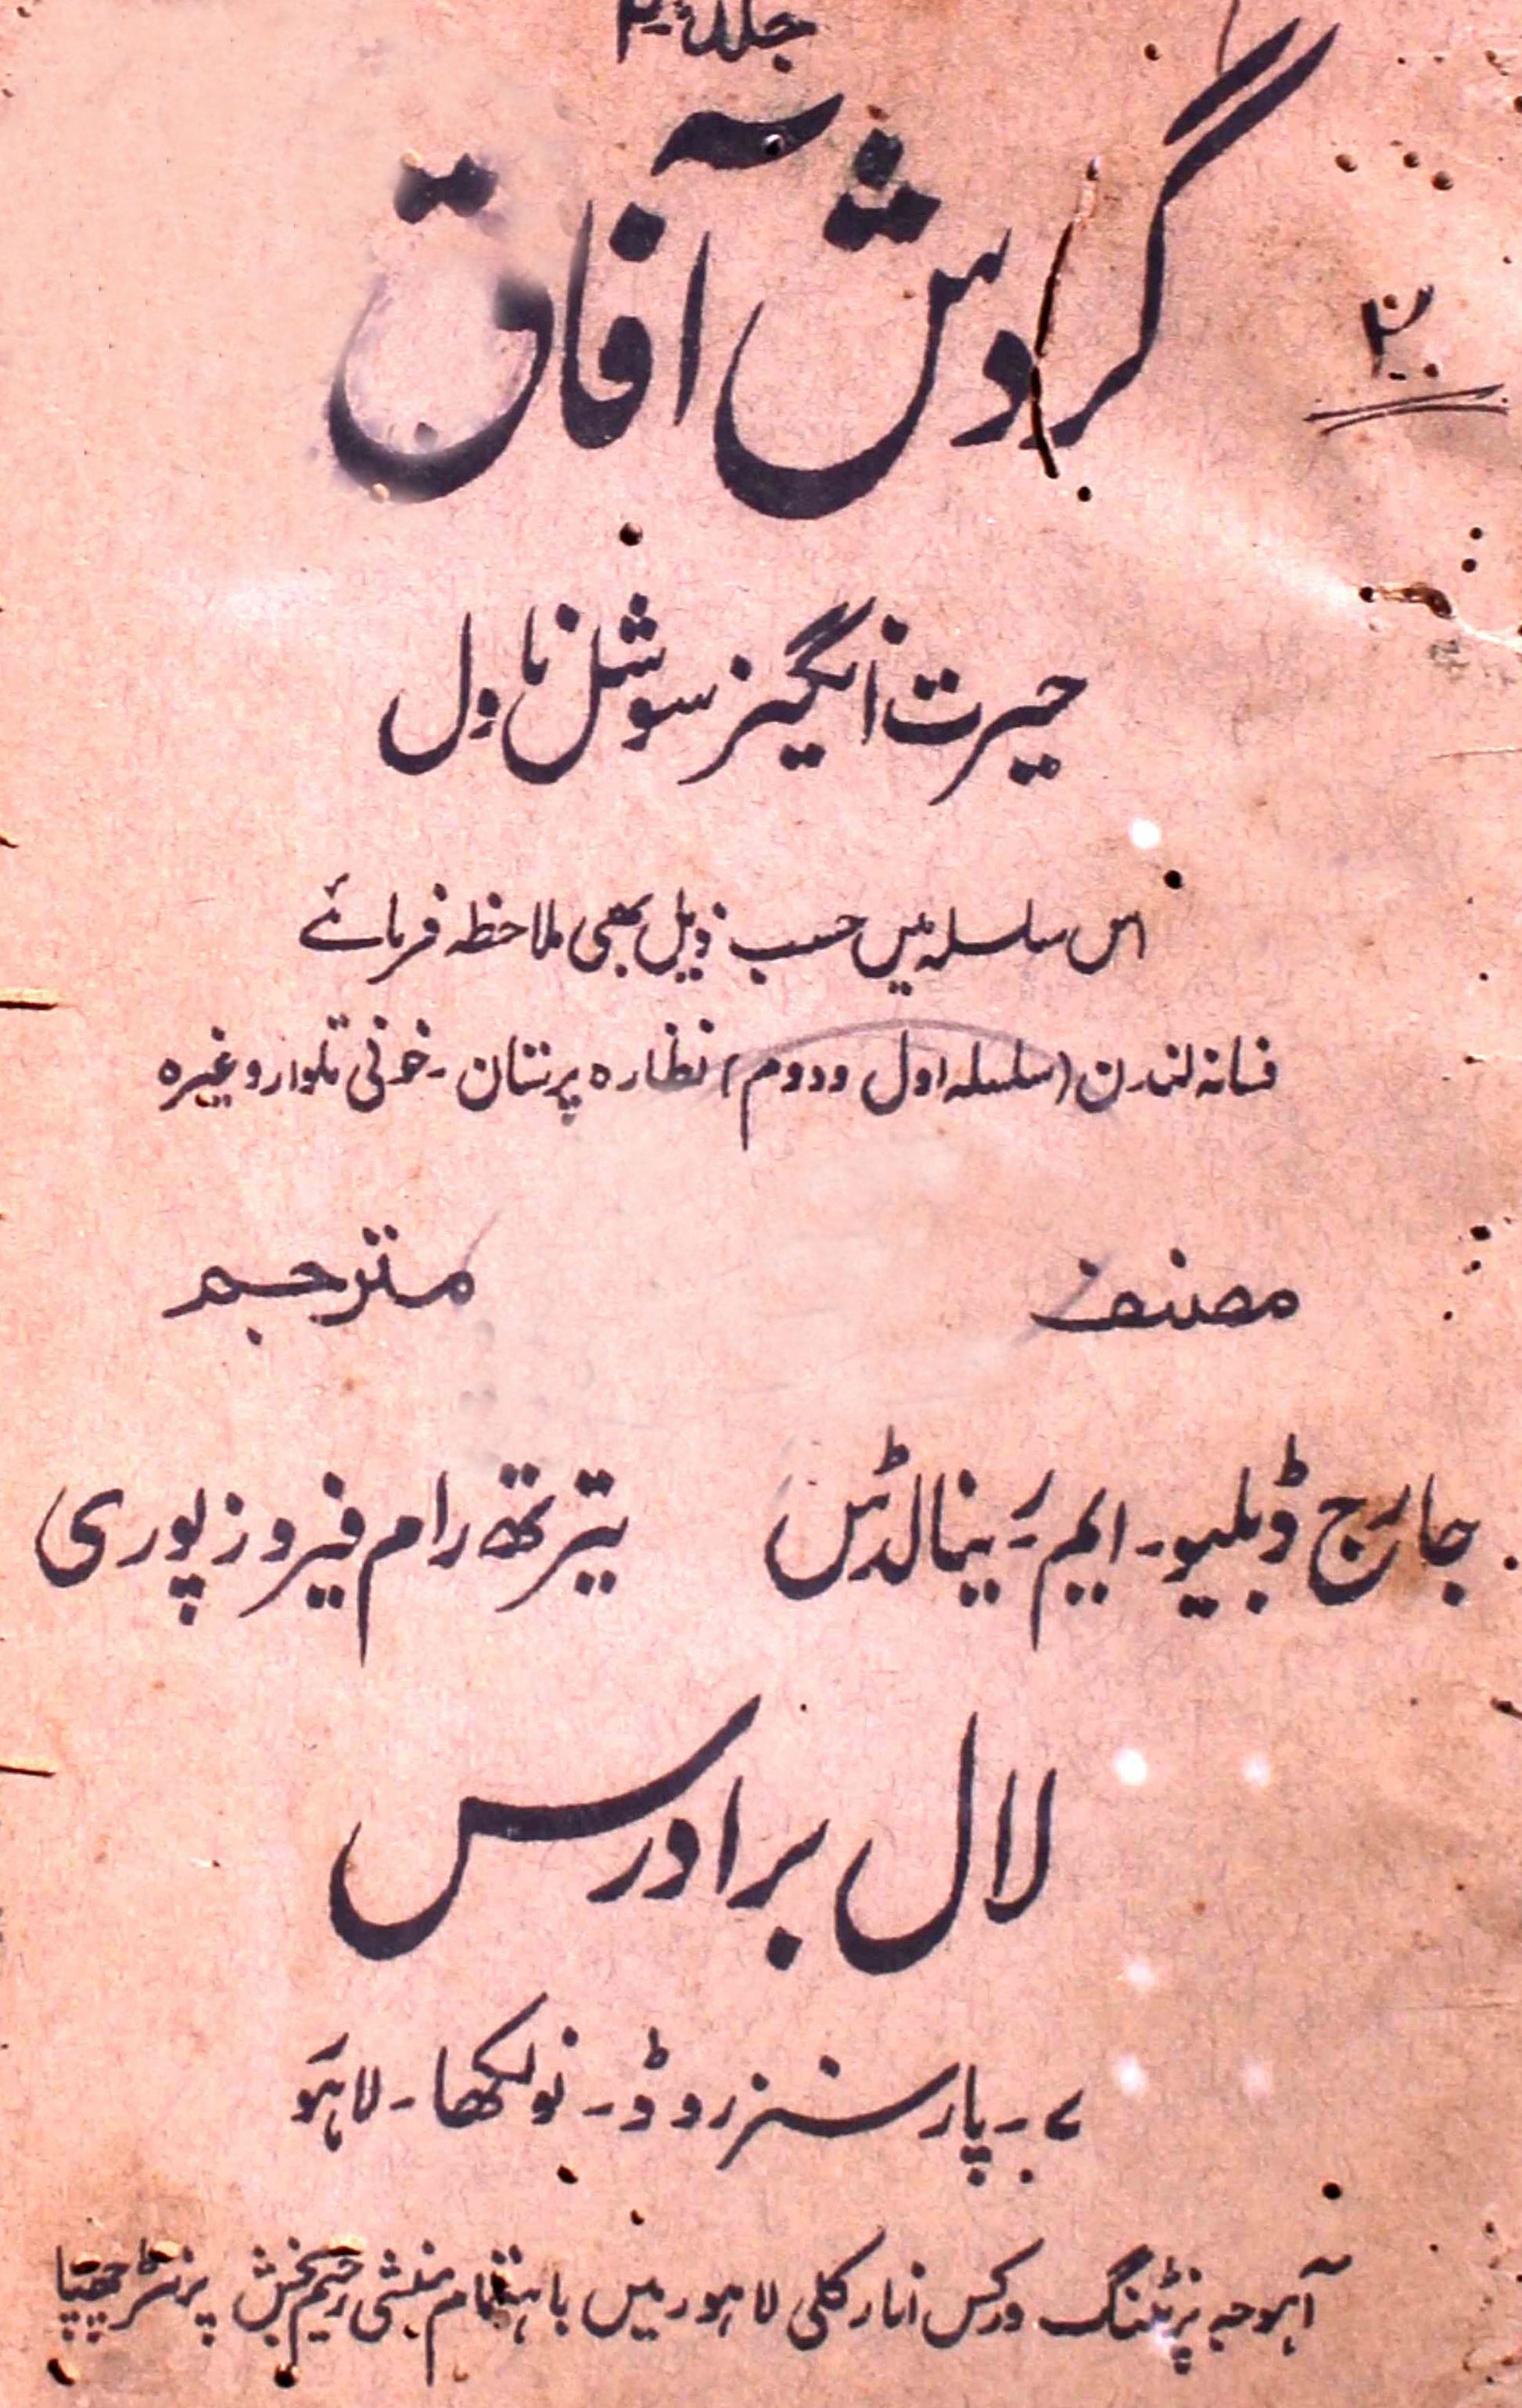 جلد ۲
گردش آفاق
۲
حیرت انگیز سوشل ناول
اس سلسلہ میں حسب ذیل بھی ملاحظہ فرمائے
فسانہ لندن (سلسلہ اول و دوم) نظارہ پرستان - خونی تلوار وغیرہ
مصنف مترجم
جارج ڈبلیو - ایم - رینالڈس تیرتھ رام فیروزپوری
لال برادرس
۷ - پارسنز روڈ - نولکھا - لاہور
آہوجہ پرنٹنگ ورکس انارکلی لاہور میں باہتمام منشی رحیم بخش پرنٹر چھپا